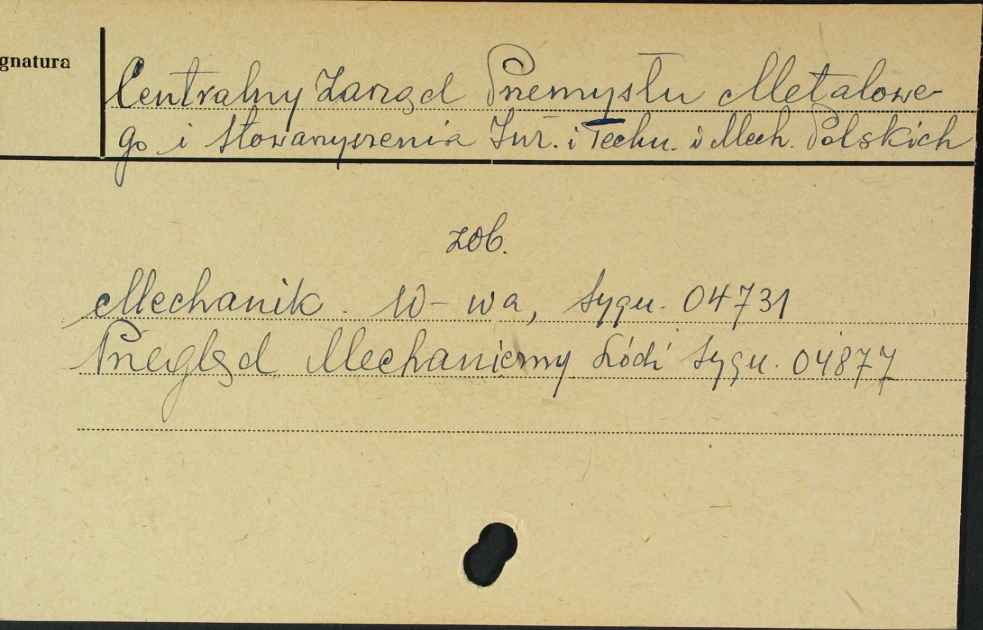 gnatura
Centralny Zarząd Przemysłu Metalowe-
go i Stowarzyszenia Inż. i Techn. i Mech. Polskich
zob.
Mechanik. W-wa, Sygn. 04731
Przegląd Mechaniczny Łódź Sygn. 04877